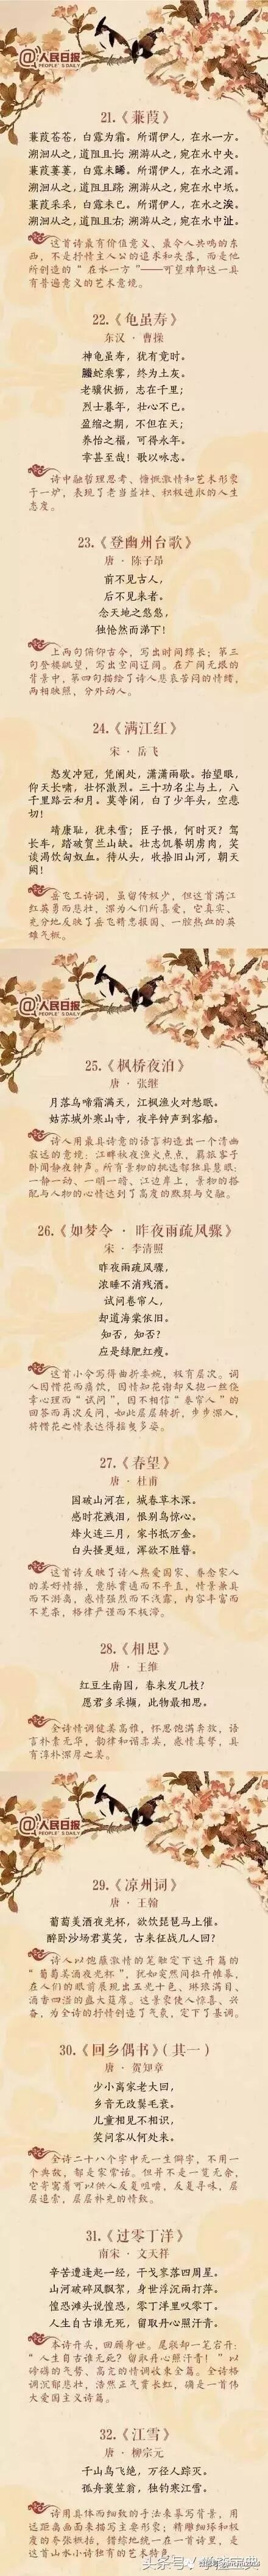 @人民日报
PEOPLE'S DAILY
21.《蒹葭》
蒹葭苍苍，白露为霜。所谓伊人，在水一方。
溯洄从之，道阻且长；溯游从之，宛在水中央。
蒹葭萋萋，白露未晞。所谓伊人，在水之湄。
溯洄从之，道阻且跻；溯游从之，宛在水中坻。
蒹葭采采，白露未已。所谓伊人，在水之涘。
溯洄从之，道阻且右；溯游从之，宛在水中沚。
这首诗最有价值意义、最令人共鸣的东
西，不是抒情主人公的追求和失落，而是他
所创造的“在水一方”——可望难即这一具
有普遍意义的艺术意境。
22.《龟虽寿》
东汉 · 曹操
神龟虽寿，犹有竟时。
螣蛇乘雾，终为土灰。
老骥伏枥，志在千里；
烈士暮年，壮心不已。
盈缩之期，不但在天；
养怡之福，可得永年。
幸甚至哉！歌以咏志。
诗中融哲理思考、慷慨激情和艺术形象
于一炉，表现了老当益壮、积极进取的人生
态度。
23.《登幽州台歌》
唐 · 陈子昂
前不见古人，
后不见来者。
念天地之悠悠，
独怆然而涕下！
上两句俯仰古今，写出时间绵长；第三
句登楼眺望，写出空间辽阔。在广阔无垠的
背景中，第四句描绘了诗人悲哀苦闷的情绪，
两相映照，分外动人。
24.《满江红》
宋 · 岳飞
怒发冲冠，凭阑处，潇潇雨歇。抬望眼，
仰天长啸，壮怀激烈。三十功名尘与土，八
千里路云和月。莫等闲，白了少年头，空悲
切！
靖康耻，犹未雪；臣子恨，何时灭？驾
长车，踏破贺兰山缺。壮志饥餐胡虏肉，笑
谈渴饮匈奴血。待从头，收拾旧山河，朝天
阙！
岳飞工诗词，虽留传极少，但这首满江
红英勇而悲壮，深为人们所喜爱，它真实、
充分地反映了岳飞精忠报国、一腔热血的英
雄气概。
@人民日报
PEOPLE'S DAILY
25.《枫桥夜泊》
唐 · 张继
月落乌啼霜满天，江枫渔火对愁眠。
姑苏城外寒山寺，夜半钟声到客船。
诗人用最具诗意的语言构造出一个清幽
寂远的意境：江畔秋夜渔火点点，羁旅客子
卧闻静夜钟声。所有景物的挑选都独具慧眼：
一静一动、一明一暗、江边岸上，景物的搭
配与人物的心情达到了高度的默契与交融。
26.《如梦令 · 昨夜雨疏风骤》
宋 · 李清照
昨夜雨疏风骤，
浓睡不消残酒。
试问卷帘人，
却道海棠依旧。
知否，知否？
应是绿肥红瘦。
这首小令写得曲折委婉，极有层次。词
人因惜花而痛饮，因情知花谢却又抱一丝侥
幸心理而“试问”，因不相信“卷帘人”的
回答而再次反问，如此层层转折，步步深入，
将惜花之情表达得摇曳多姿。
27.《春望》
唐 · 杜甫
国破山河在，城春草木深。
感时花溅泪，恨别鸟惊心。
烽火连三月，家书抵万金。
白头搔更短，浑欲不胜簪。
这首诗反映了诗人热爱国家、眷念家人
的美好情操，意脉贯通而不平直，情景兼具
而不游离，感情强烈而不浅露，内容丰富而
不芜杂，格律严谨而不板滞。
28.《相思》
唐 · 王维
红豆生南国，春来发几枝？
愿君多采撷，此物最相思。
全诗情调健美高雅，怀思饱满奔放，语
言朴素无华，韵律和谐柔美，感情真挚，具
有淳朴深厚之美。
@人民日报
PEOPLE'S DAILY
29.《凉州词》
唐 · 王翰
葡萄美酒夜光杯，欲饮琵琶马上催。
醉卧沙场君莫笑，古来征战几人回？
诗人以饱蘸激情的笔触定下这开篇的
“葡萄美酒夜光杯”，犹如突然间拉开帷幕，
在人们的眼前展现出五光十色、琳琅满目、
酒香四溢的盛大筵席。这景象使人惊喜、兴
奋，为全诗的抒情创造了气氛，定下了基调。
30.《回乡偶书》（其一）
唐 · 贺知章
少小离家老大回，
乡音无改鬓毛衰。
儿童相见不相识，
笑问客从何处来。
全诗二十八个字中无一生僻字，不用一
个典故，都是家常话。但并不是一览无余，
它寄寓着可以供人反复咀嚼，反复寻味，层
层追索，层层补充的情致。
31.《过零丁洋》
南宋 · 文天祥
辛苦遭逢起一经，干戈寥落四周星。
山河破碎风飘絮，身世浮沉雨打萍。
惶恐滩头说惶恐，零丁洋里叹零丁。
人生自古谁无死，留取丹心照汗青。
本诗开头，回顾身世。尾联却一笔宕开：
“人生自古谁无死？留取丹心照汗青！”以
磅礴的气势、高亢的情调收束全篇。全诗格
调沉郁悲壮，浩然正气贯长虹，确是一首伟
大爱国主义诗篇。
32.《江雪》
唐 · 柳宗元
千山鸟飞绝，万径人踪灭。
孤舟蓑笠翁，独钓寒江雪。
诗用具体而细致的手法来摹写背景，用
远距离画面来描写主要形象；精雕细琢和极
度的夸张概括，错综地统一在一首诗里，是
这首山水小诗独有的艺术特色。